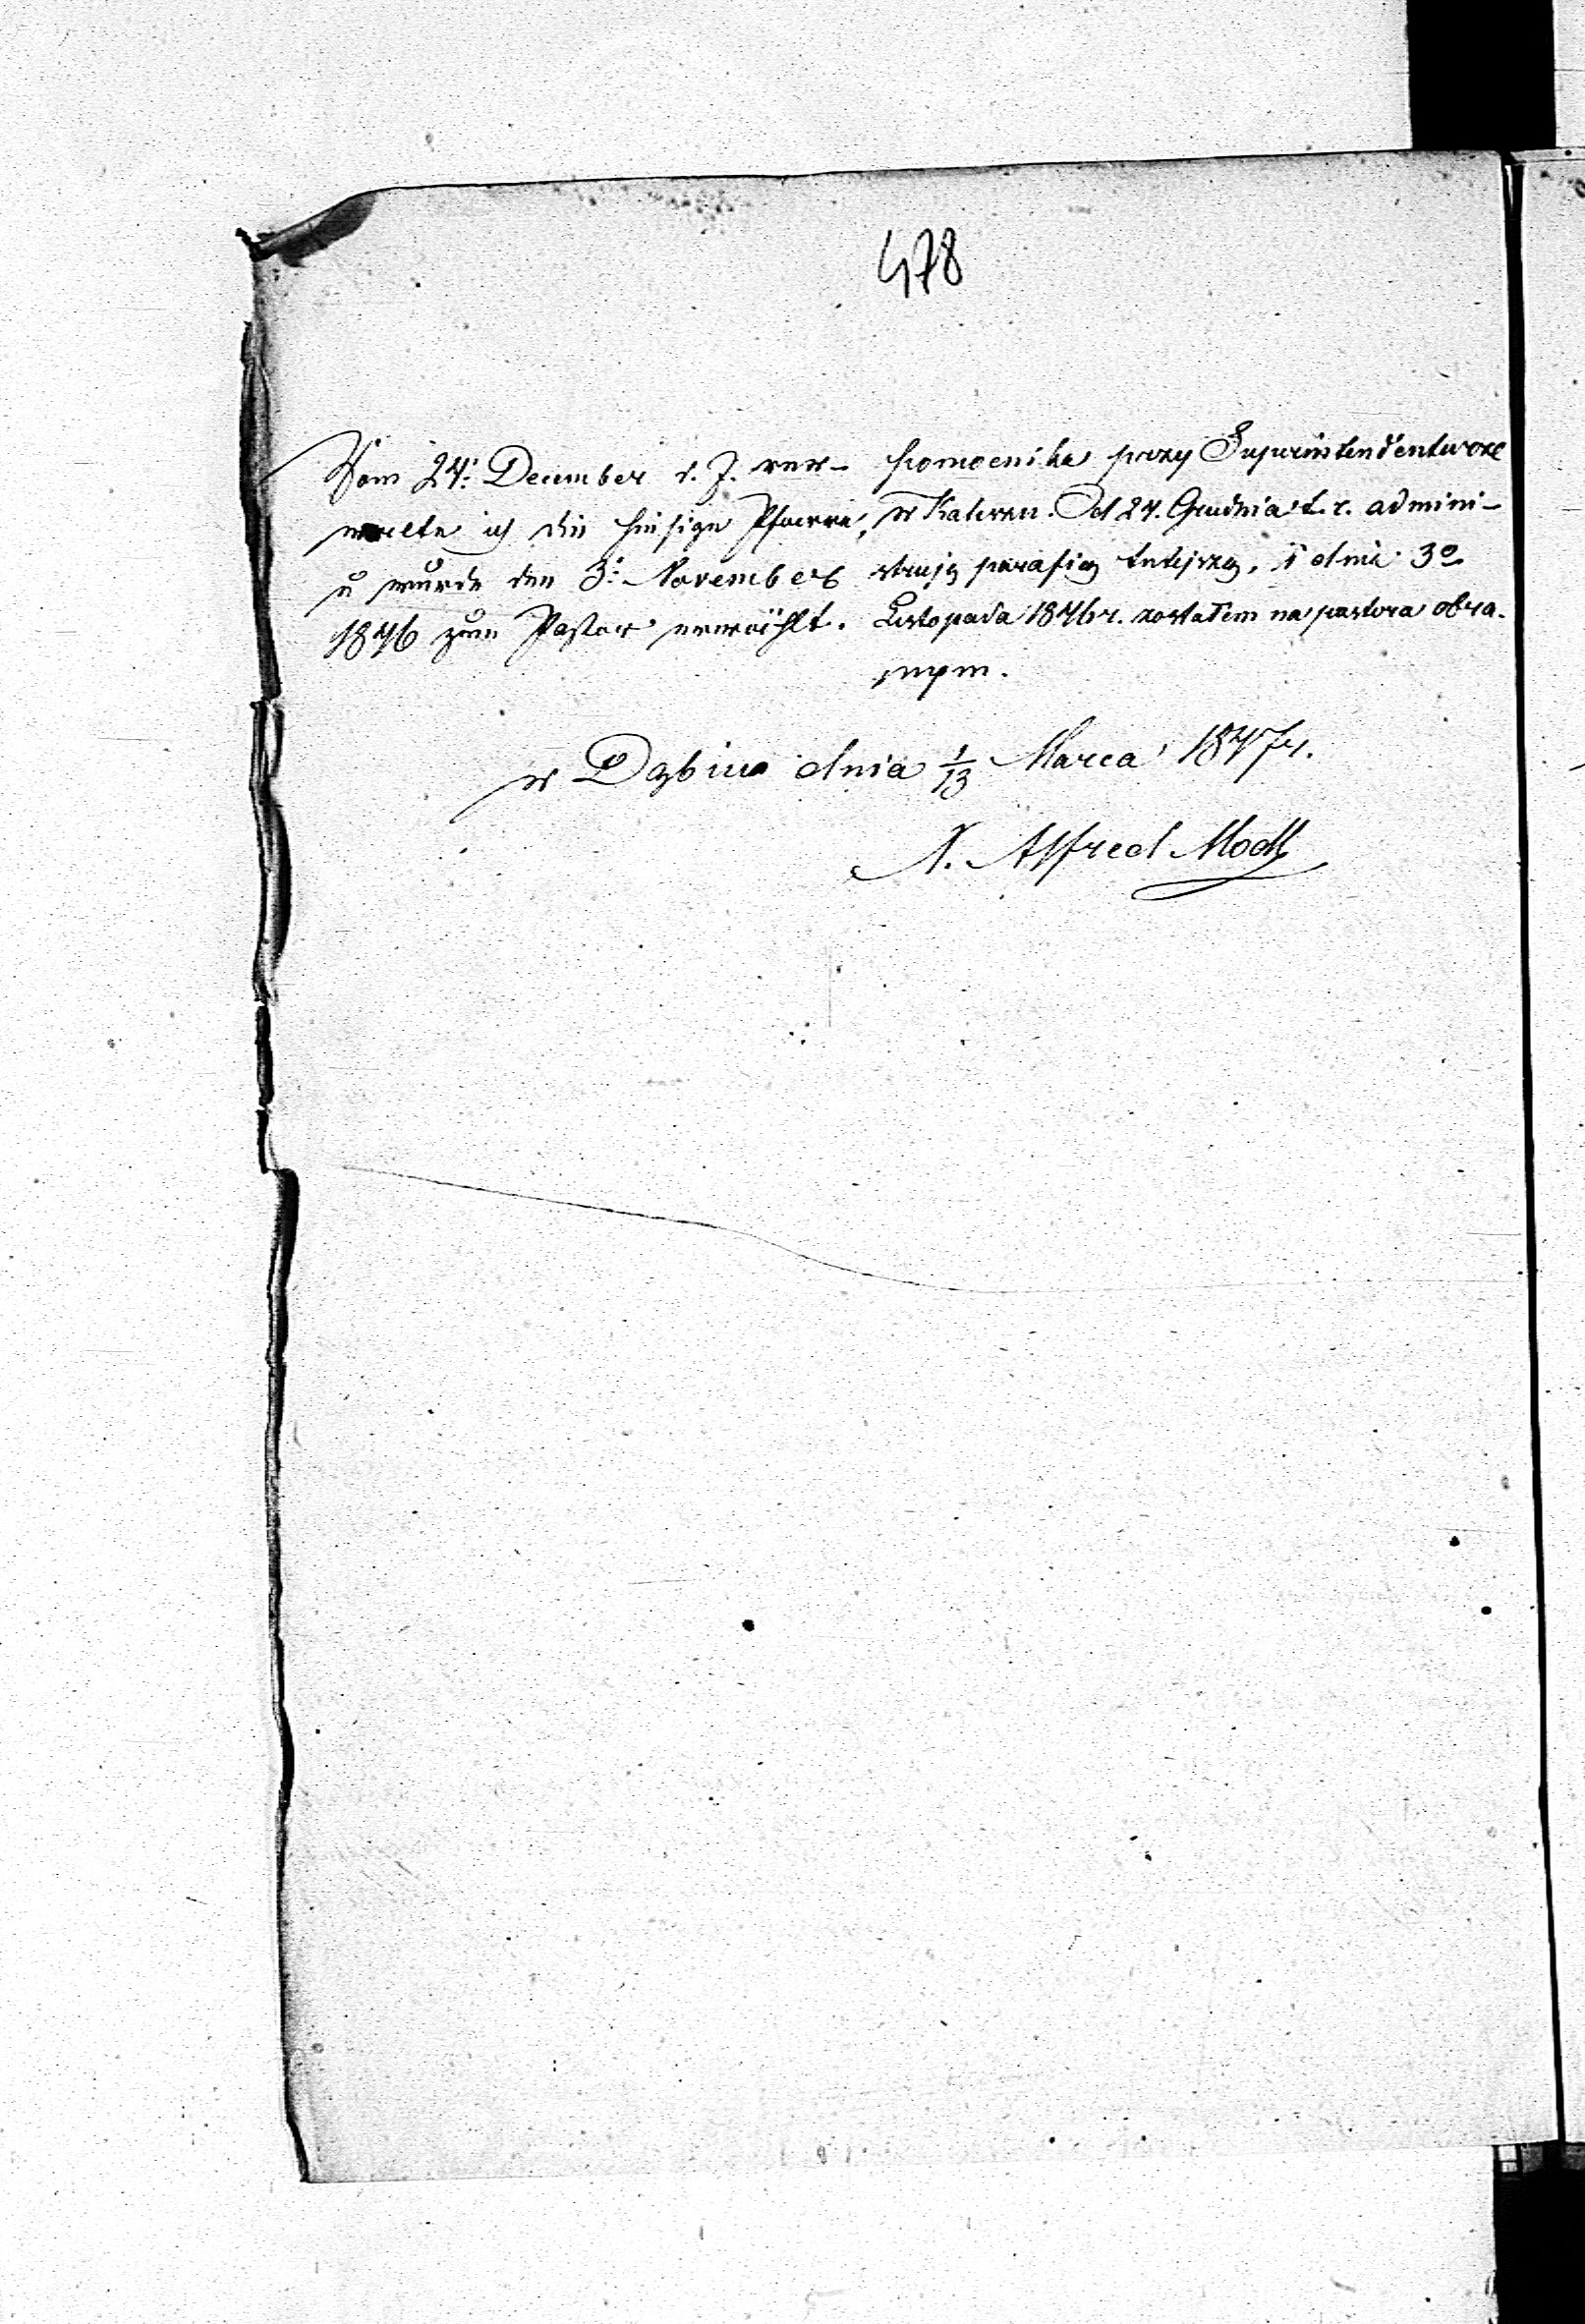 478
Vom 24: December d. J. ver-
walte ich die hiesige Pfarre,
u wurde den 3: November
1846 zum Pastor erwählt.
pomocnika przy Superintendentwrze
w Kaliszu. Od 24. Grudnia t. r. admini-
struję parafią tutejszą, i dnia 3o
Listopada 1846 r. zostałem na pastora obra-
nym.
w Dąbiu dnia 1/13 Marca 1847 r.
X. Alfred Modl